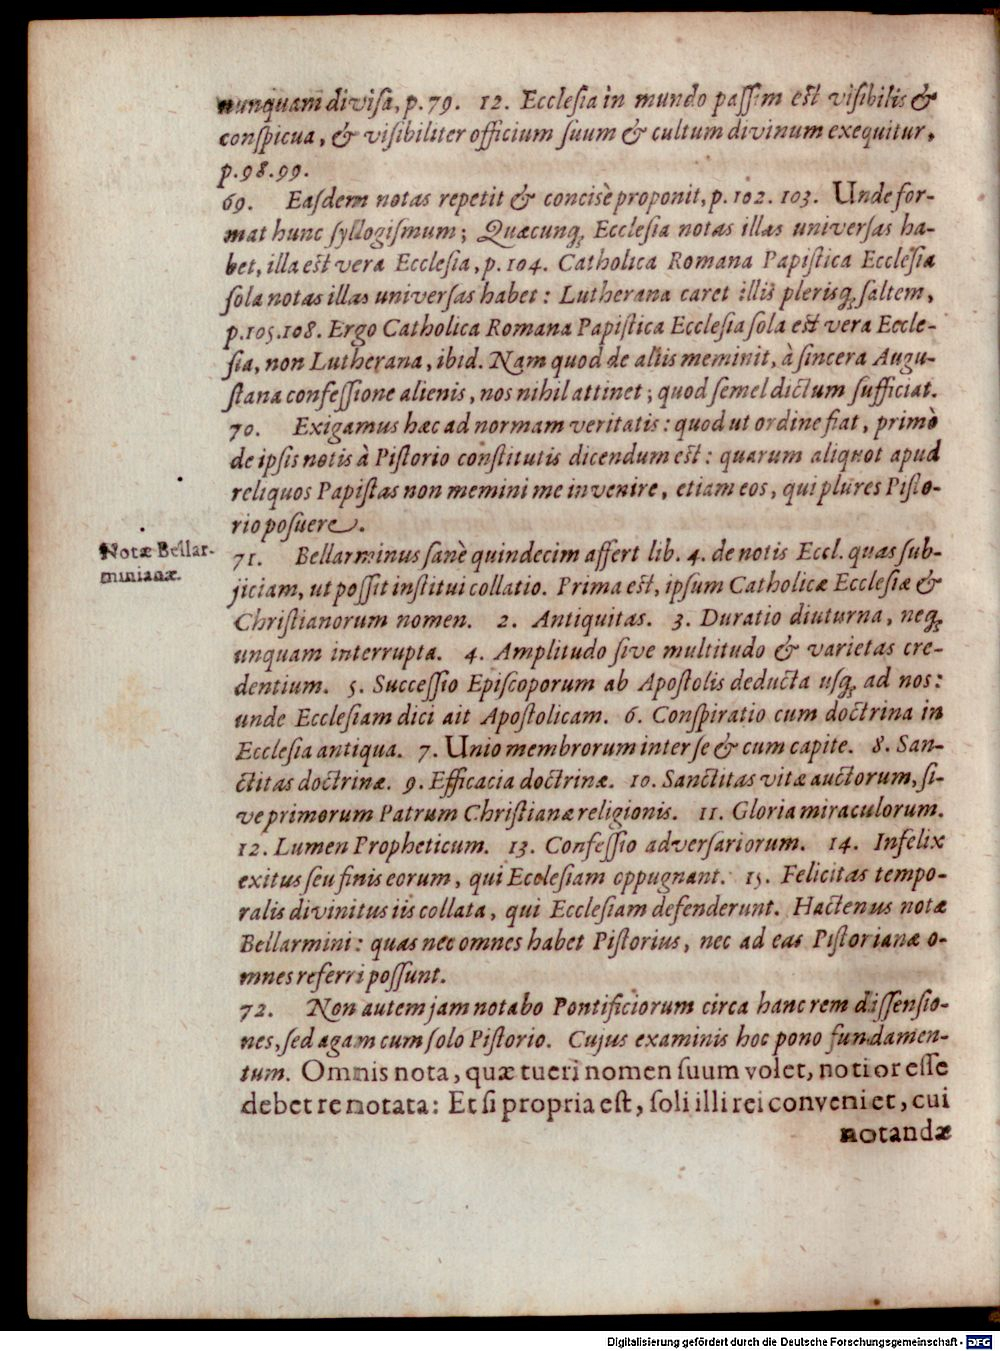 nunquam divisa, p. 79. 12. Ecclesia in mundo passim est visibilis &
conspicua, & visibiliter officium suum & cultum divinum exequitur,
p. 98. 99.
69. Easdem notas repetit & concisè proponit, p. 102. 103. Unde for-
mat hunc syllogismum; Quæcunq; Ecclesia notas illas universas ha-
bet, illa est vera Ecclesia, p. 104. Catholica Romana Papistica Ecclesia
sola notas illas universas habet: Lutherana caret illis plerisq; saltem,
p. 105. 108. Ergo Catholica Romana Papistica Ecclesia sola est vera Eccle-
sia, non Lutherana, ibid. Nam quod de aliis meminit, à sincera Augu-
stana confessione alienis, nos nihil attinet; quod semel dictum sufficiat.
70. Exigamus hæc ad normam veritatis: quod ut ordine fiat, primò
de ipsis notis à Pistorio constitutis dicendum est: quarum aliquot apud
reliquos Papistas non memini me invenire, etiam eos, qui plures Pisto-
rio posuere.
Notæ Bellar-
minianæ.
71. Bellarminus sanè quindecim affert lib. 4. de notis Eccl. quas sub-
jiciam, ut possit institui collatio. Prima est, ipsum Catholicæ Ecclesiæ &
Christianorum nomen. 2. Antiquitas. 3. Duratio diuturna, neq;
unquam interrupta. 4. Amplitudo sive multitudo & varietas cre-
dentium. 5. Successio Episcoporum ab Apostolis deducta usq; ad nos:
unde Ecclesiam dici ait Apostolicam. 6. Conspiratio cum doctrina in
Ecclesia antiqua. 7. Unio membrorum inter se & cum capite. 8. San-
ctitas doctrinæ. 9. Efficacia doctrinæ. 10. Sanctitas vitæ auctorum, si-
ve primorum Patrum Christianæ religionis. 11. Gloria miraculorum.
12. Lumen Propheticum. 13. Confessio adversariorum. 14. Infelix
exitus seu finis eorum, qui Ecclesiam oppugnant. 15. Felicitas tempo-
ralis divinitus iis collata, qui Ecclesiam defenderunt. Hactenus notæ
Bellarmini: quas nec omnes habet Pistorius, nec ad eas Pistorianæ o-
mnes referri possunt.
72. Non autem jam notabo Pontificiorum circa hanc rem dissensio-
nes, sed agam cum solo Pistorio. Cujus examinis hoc pono fundamen-
tum. Omnis nota, quæ tueri nomen suum volet, notior esse
debet re notata: Et si propria est, soli illi rei conveniet, cui
notandæ
Digitalisierung gefördert durch die Deutsche Forschungsgemeinschaft - DFG